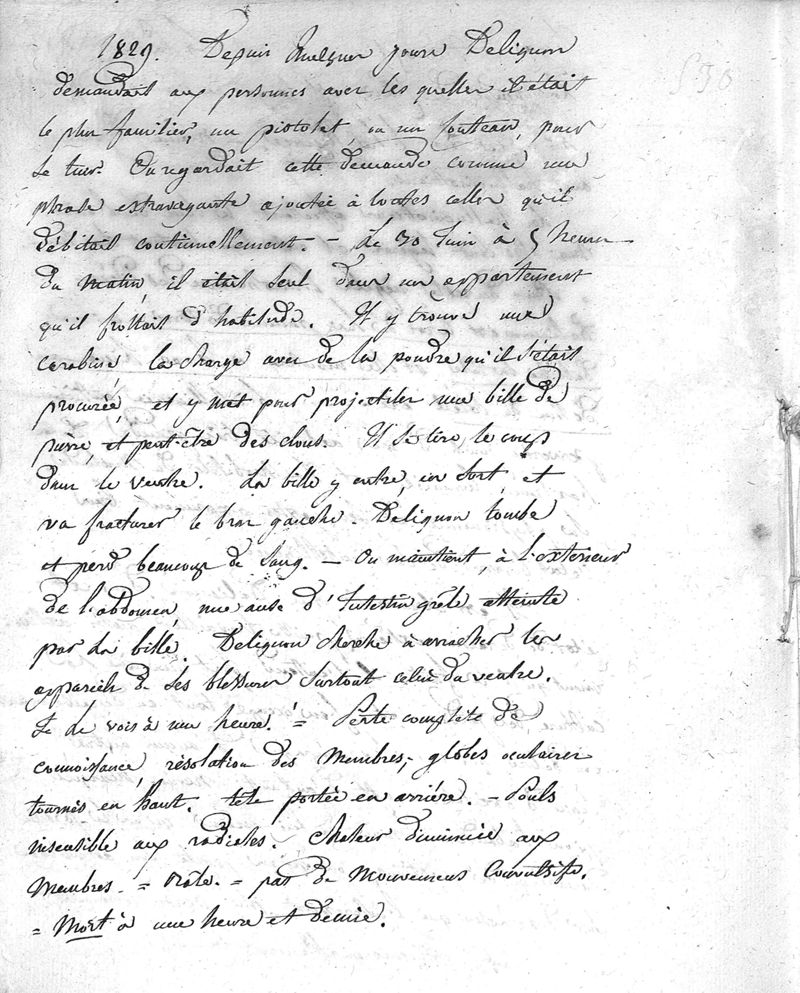 1829. Depuis quelques jours Deliguon
530
demandait aux personnes avec lesquelles il était
le plus familier, un pistolet, ou un couteau, pour
se tuer. On regardait cette demande comme une
phrase extravagante ajoutée à toutes celles qu'il
débitait continuellement. – Le 30 Juin à 5 heures
du matin, il était seul dans un appartement
qu'il frottait d'habitude. Il y trouve une
carabine la charge avec de la poudre qu'il s'était
procurée, et y met pour projectiles une bille de
pierre, et peut-être des clous. Il se tire le coup
dans le ventre. La bille y entre, en sort et
va fracturer le bras gauche. Deliguon tombe
et perd beaucoup de sang. – On maintient, à l'extérieur
de l'abdomen, une anse d'Intestin grêle atteinte
par la bille. Deliguon cherche à arracher les
appareils de ses blessures surtout celui du ventre.
Je le vois à une heure. = Perte complète de
connoissance, résolution des Membres, globes oculaires
tournés en haut. tête portée en arrière. – Pouls
insensible aux radiales. Chaleur diminuée aux
Membres. = Râle. = pas de Mouvemens Convulsifs.
= Mort à une heure et demie.